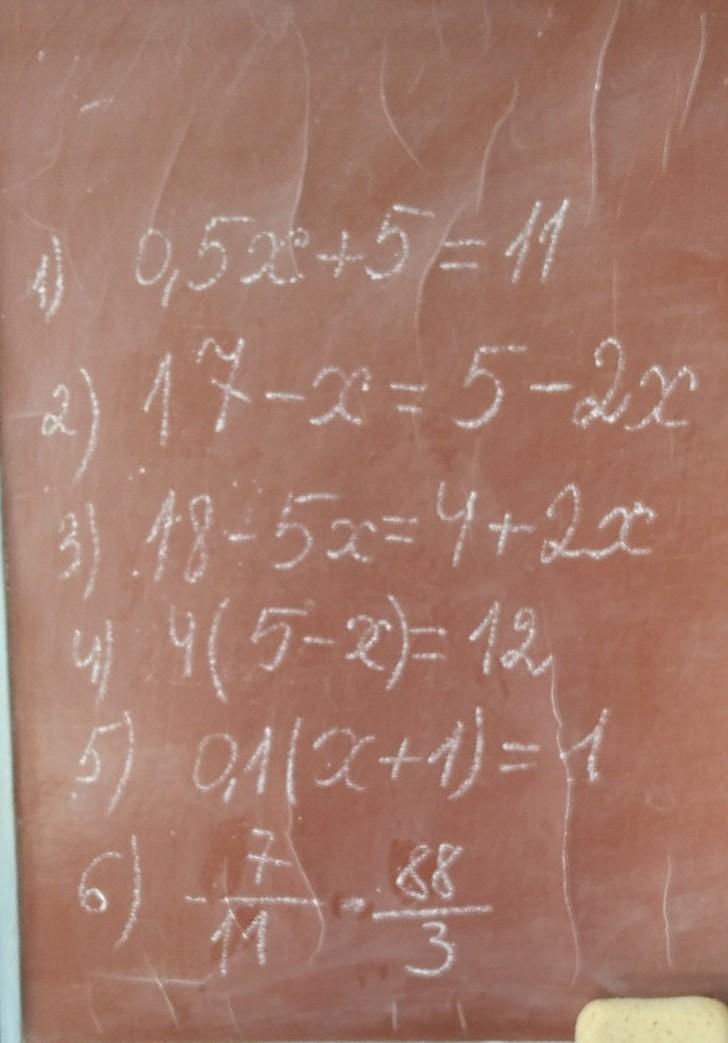 1) 0,5x+5=11
2) 17-x=5-2x
3) 18-5x=4+2x
4) 4(5-x)=12
5) 0,1(x+1)=1
6) -7/11 - 88/3